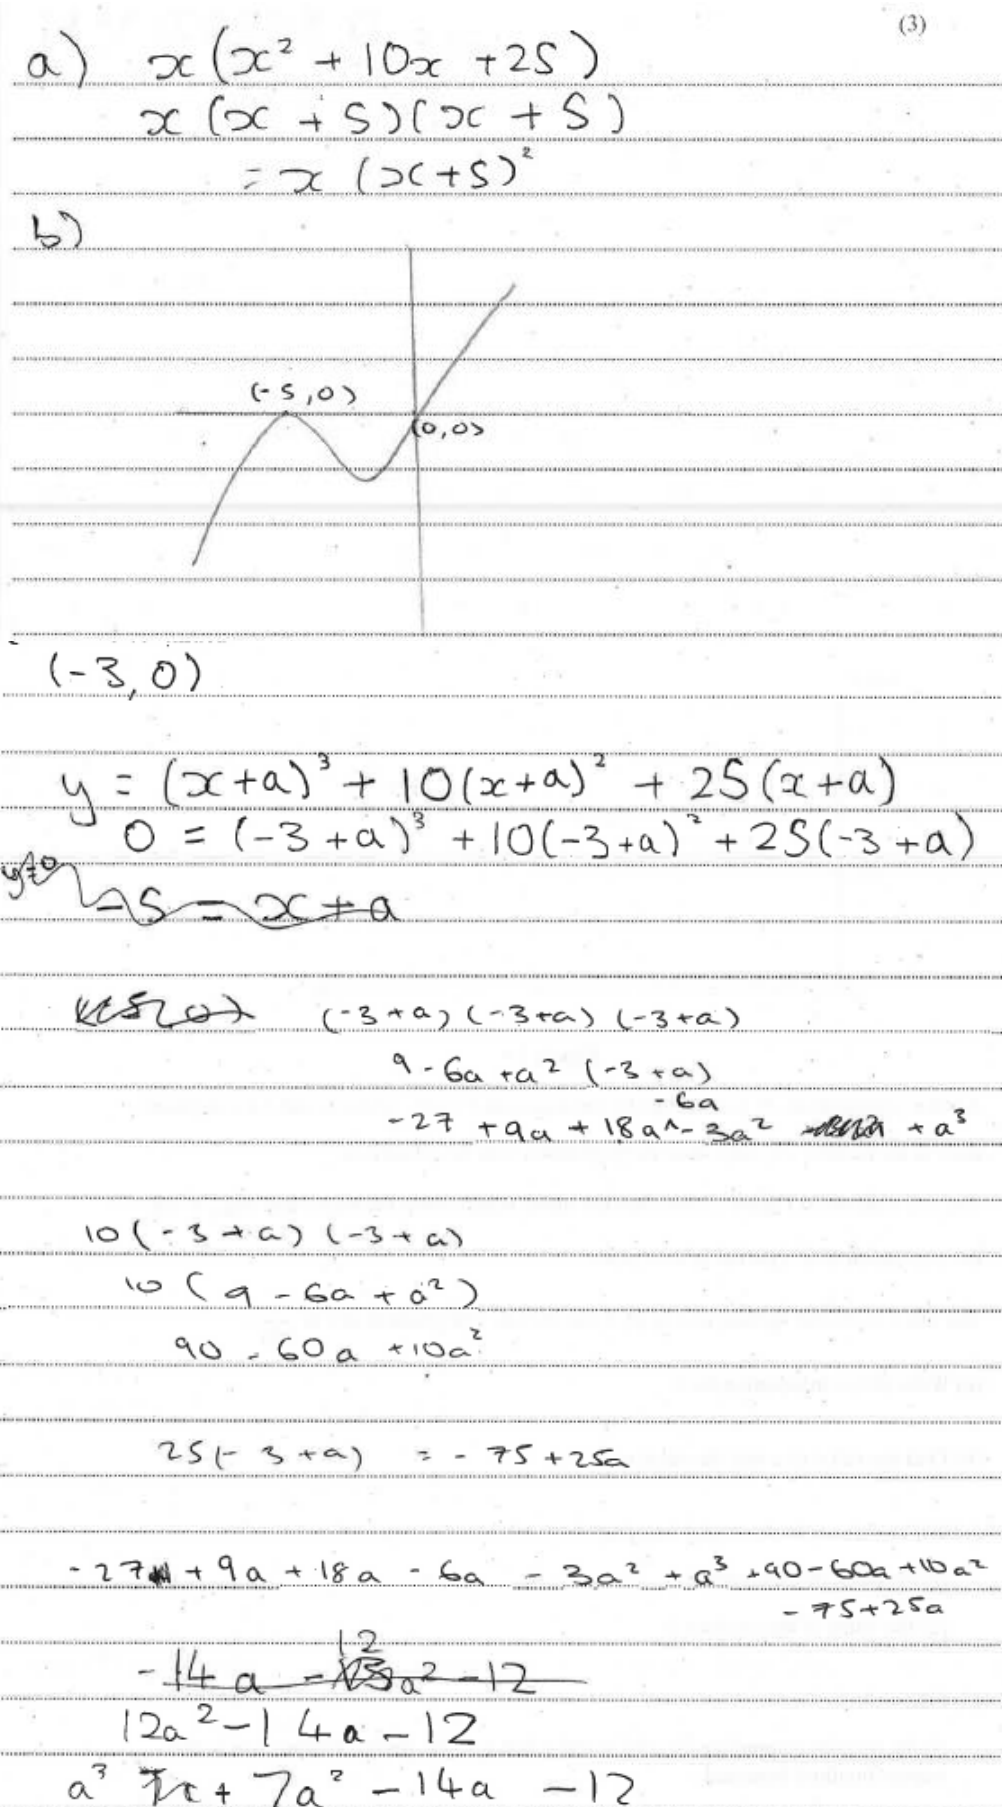 (3)
a) x(x² + 10x + 25)
x(x + 5)(x + 5)
= x(x+5)²
b)
(-5,0)
(0,0)
(-3,0)
y = (x+a)³ + 10(x+a)² + 25(x+a)
0 = (-3+a)³ + 10(-3+a)² + 25(-3+a)
-5 = x+a
(-3+a)(-3+a)(-3+a)
9-6a+a²(-3+a)
-6a
-27 + 9a + 18a ^ - 3a² + a³
10(-3+a)(-3+a)
10(9-6a+a²)
90-60a+10a²
25(-3+a) = -75+25a
-27 + 9a + 18a - 6a - 3a² + a³ + 90 - 60a + 10a²
-75+25a
12
-14a - a² - 12
12a² - 14a - 12
a³ + 7a² - 14a - 12